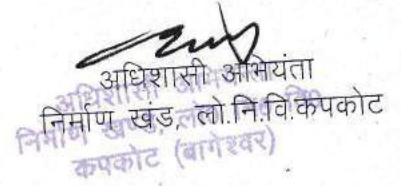 अधिशासी अभियंता
निर्माण खंड, लो.नि.वि.कपकोट
अधिशासी
निर्माण खण्ड,
कपकोट (बागेश्वर)